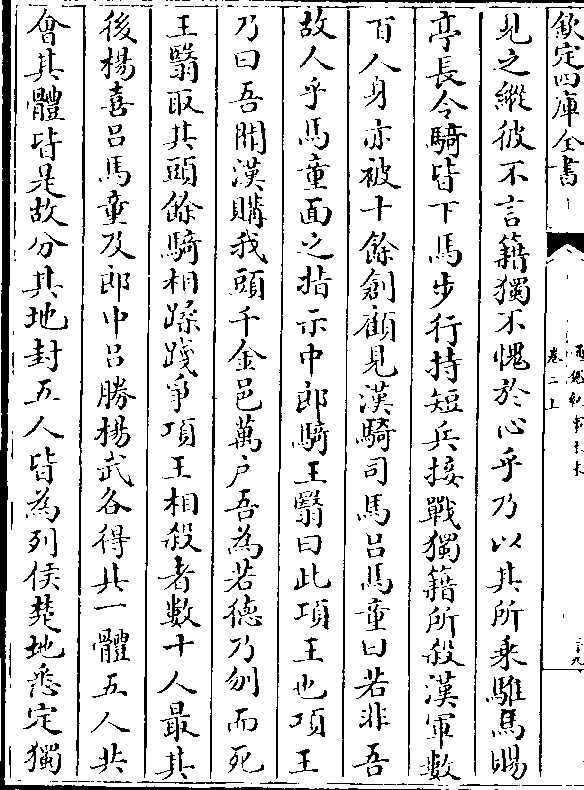 欽定四庫全書
通鑑紀事本末
卷二上
二十九
見之縱彼不言籍獨不愧於心乎乃以其所乗騅馬賜
亭長令騎皆下馬步行持短兵接戰獨籍所殺漢軍數
百人身亦被十餘創顧見漢騎司馬吕馬童曰若非吾
故人乎馬童面之指示中郎騎王翳曰此項王也項王
乃曰吾聞漢購我頭千金邑萬户吾為若德乃刎而死
王翳取其頭餘騎相蹂踐爭項王相殺者數十人最其
後楊喜吕馬童及郎中吕勝楊武各得其一體五人共
㑹其體皆是故分其地封五人皆為列侯楚地悉定獨